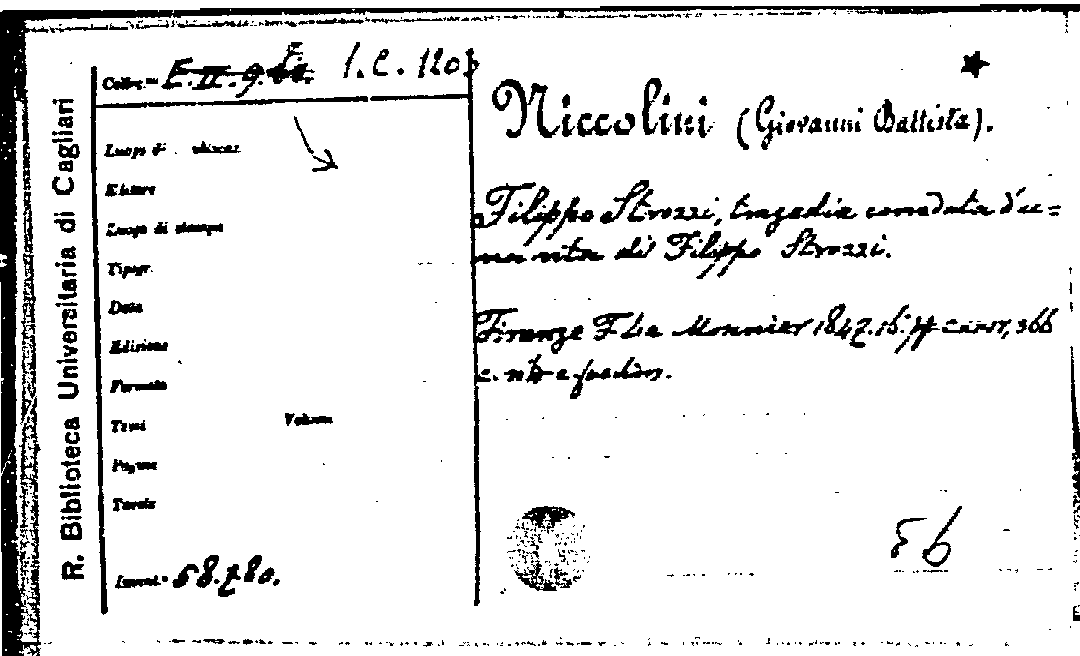 R. Biblioteca Universitaria di Cagliari
Colloc.ne E. II. 9. 1. C. 120
Luogo di
Editore
Luogo di stampa
Tipogr.
Data
Edizione
Formato
Tomi Volumi
Pagine
Tavole
Invent.e 58.780.
Niccolini (Giovanni Battista).
Filippo Strozzi, tragedia corredata d'u=
na vita di Filippo Strozzi.
Firenze F. Le Monnier 1847. 16. pp 366
c.